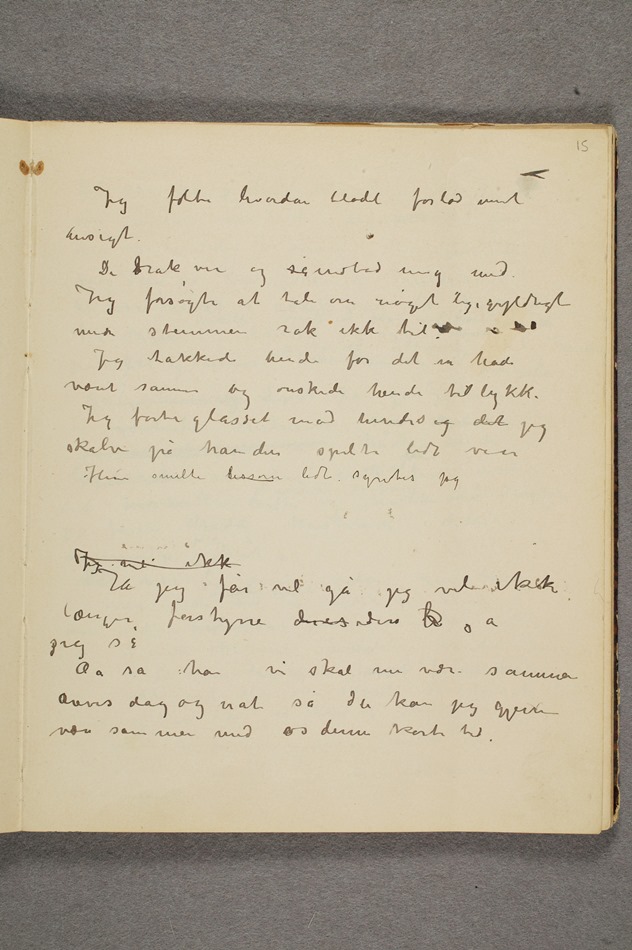 15
Jeg følte hvordan blodet forlod mit
ansigt.
De drak vin og indbød mig med.
Jeg forsøgte at tale om noget ligegyldigt
men stemmen rak ikke til.
Jeg takkede hende for det vi hade
været sammen og ønskede hende til lykke.
Jeg førte glasset mod mund og det jeg
skalv på handen spilte lidt vin
Hun smilte lidt. syntes jeg
Jeg vil ikke
Ja jeg får vel gå jeg vil ikke
længer forstyrre deres
jeg så
Aa sa han vi skal nu være sammen
dag og nat så du kan jeg gjerne
være sammen med os denne korte tid.